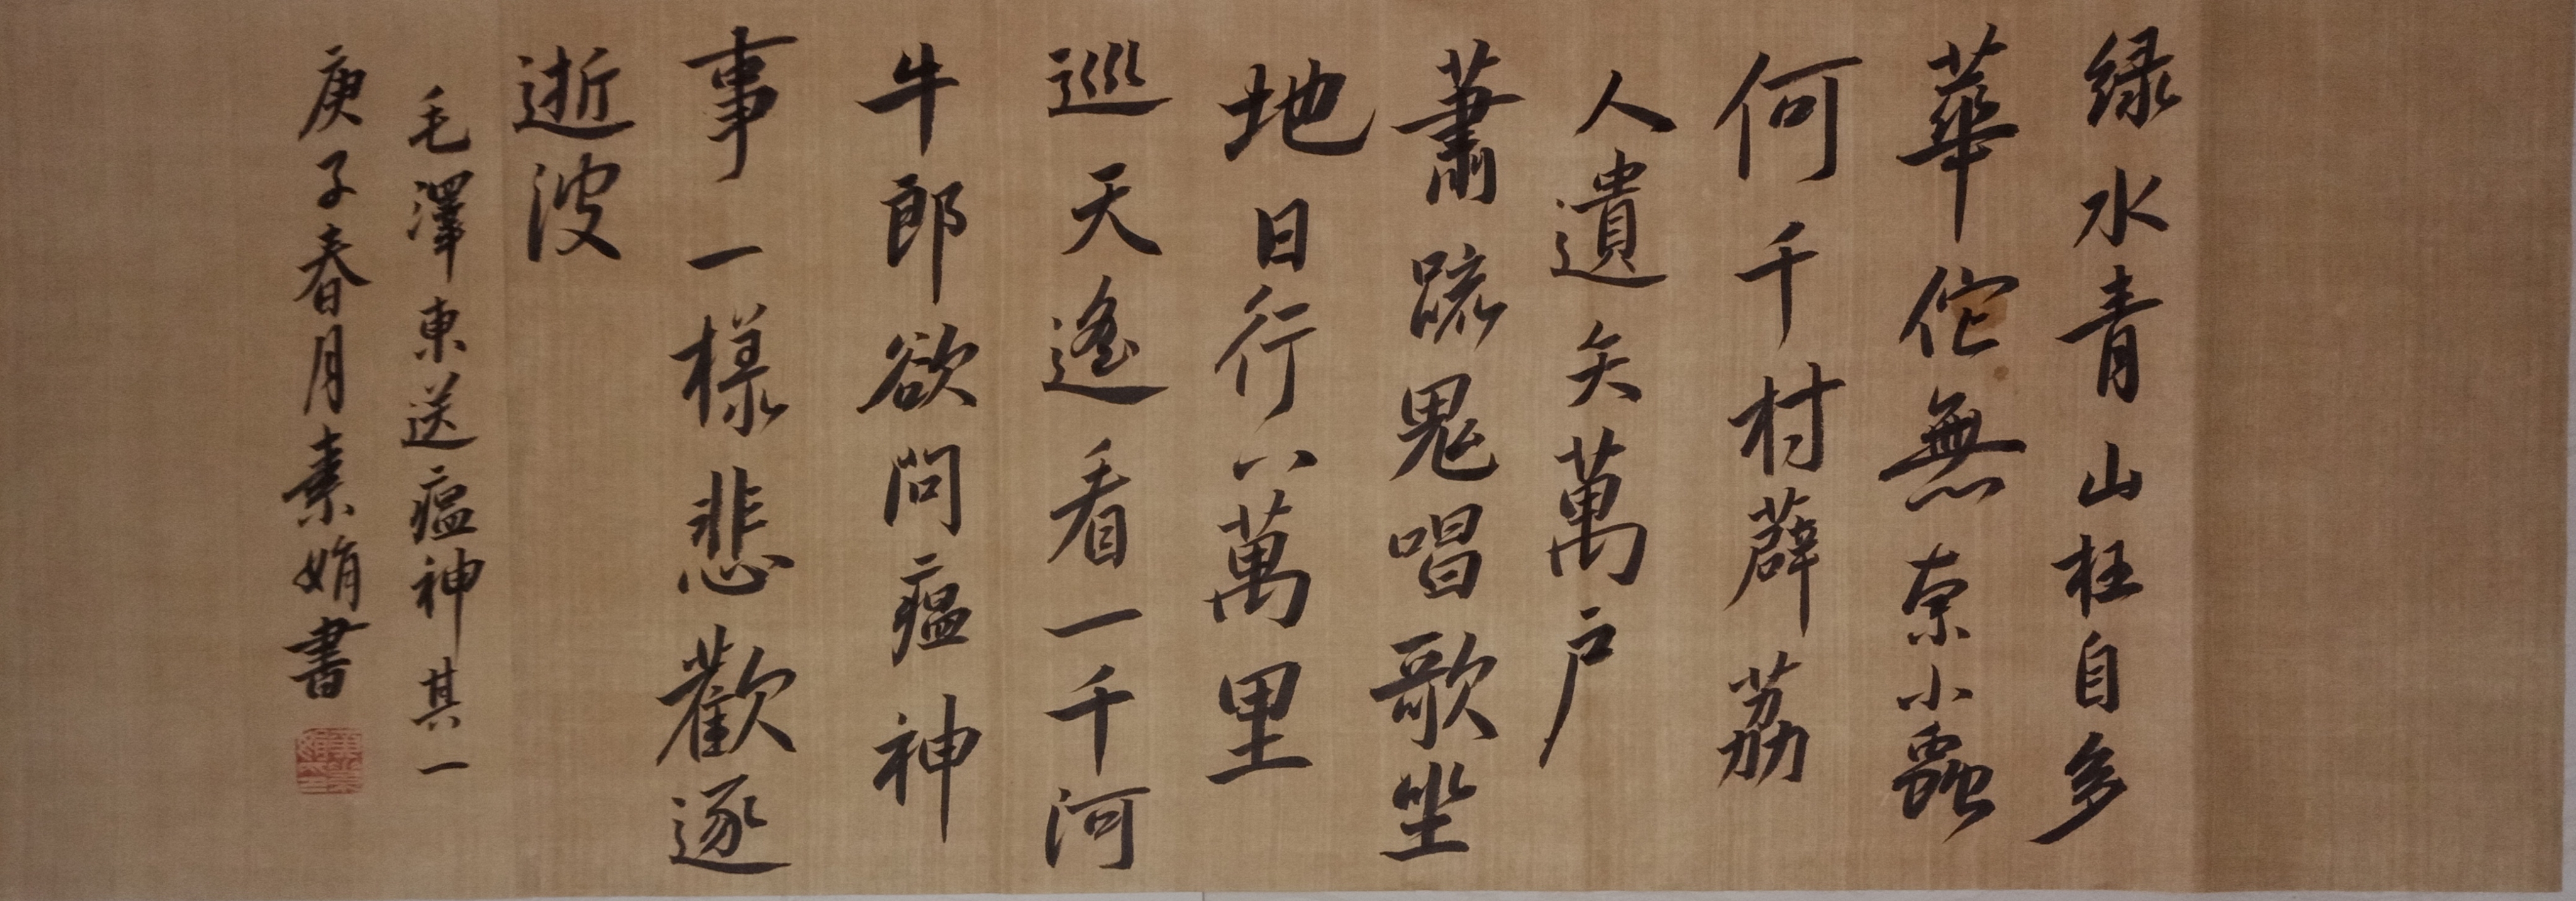 绿水青山枉自多
華佗無奈小蟲
何千村薜荔
人遺矢萬戶
蕭疏鬼唱歌坐
地日行八萬里
巡天遙看一千河
牛郎欲問瘟神
事一樣悲歡逐
逝波
毛澤東送瘟神其一
庚子春月素娟書